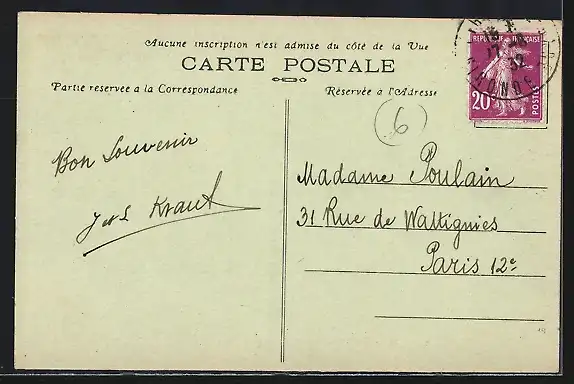 Aucune inscription n'est admise du côté de la Vue
CARTE POSTALE
Partie réservée a la Correspondance
Réservée a l'Adresse
REPUBLIQUE FRANÇAISE
20
POSTES
GIRONDE
6
Bon Souvenir
Kraut
Madame Poulain
31 Rue de Wattignies
Paris 12e